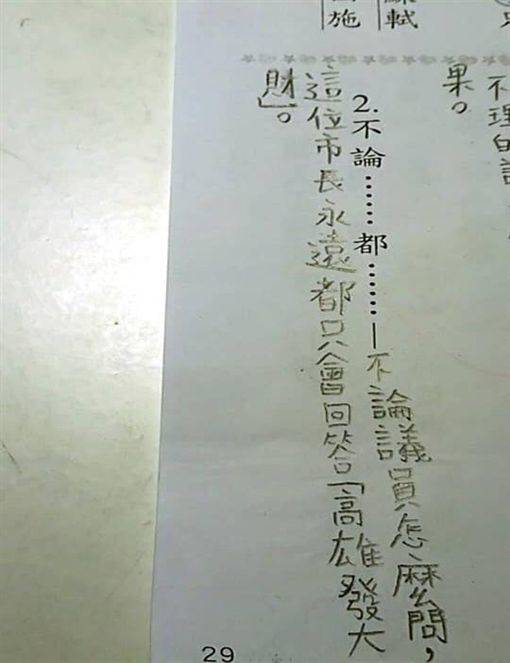 施
軾
不理的
果。
2.不論……都……—不論議員怎麼問，
這位市長永遠都只會回答「高雄發大
財」。
29